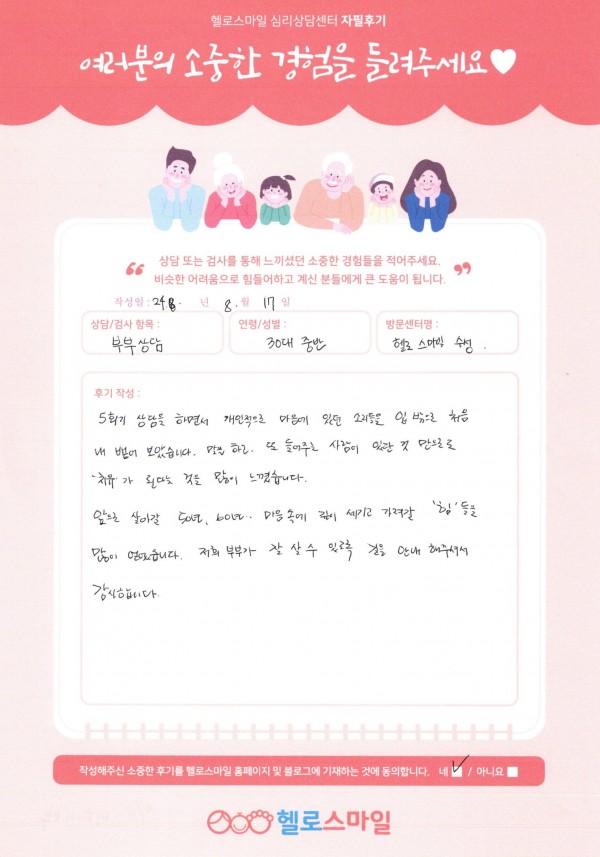 헬로스마일 심리상담센터 자필후기
여러분의 소중한 경험을 들려주세요♥
“ 상담 또는 검사를 통해 느끼셨던 소중한 경험들을 적어주세요.
비슷한 어려움으로 힘들어하고 계신 분들에게 큰 도움이 됩니다. ”
작성일 : 24. 년 8. 월 17 일
상담/검사 항목 :
부부상담
연령/성별 :
30대 중반
방문센터명 :
헬로 스마일 수성.
후기 작성 :
5회기 상담을 하면서 개인적으로 마음에 있던 소리들을 입 밖으로 처음
내 뱉어 보았습니다. 말을 하고, 또 들어주는 사람이 있단 것 만으로
'치유'가 된다는 것을 많이 느꼈습니다.
앞으로 살아갈 50년, 60년... 마음속에 깊이 새기고 가져갈 '힘'들을
많이 얻었습니다. 저희 부부가 잘 살 수 있도록 길을 안내 해주셔서
감사합니다.
작성해주신 소중한 후기를 헬로스마일 홈페이지 및 블로그에 기재하는 것에 동의합니다. 네 ✓ / 아니요
헬로스마일